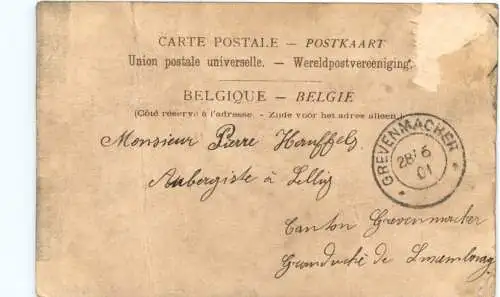 CARTE POSTALE — POSTKAART
Union postale universelle. — Wereldpostvereeniging.
BELGIQUE — BELGIE
(Côté réservé à l'adresse. - Zijde voor het adres alleen.)
GREVENMACHER
28 6
01
Monsieur Pierre Hauffels
Aubergiste à Lellig
Canton Grevenmacher
Grand-duché de Luxembourg